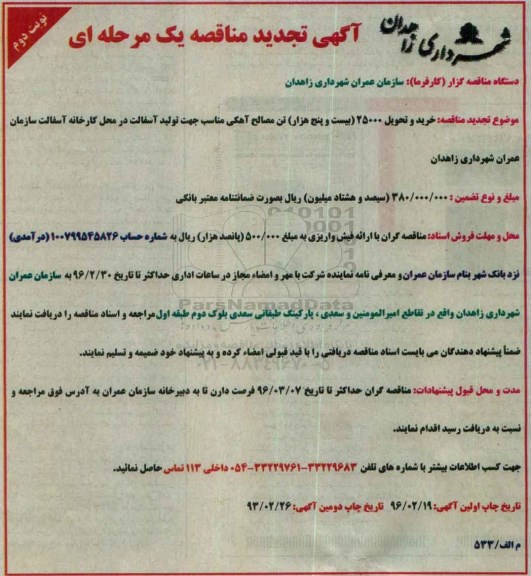 نوبت دوم
شهرداری زاهدان
آگهی تجدید مناقصه یک مرحله ای
دستگاه مناقصه گزار (کارفرما): سازمان عمران شهرداری زاهدان
موضوع تجدید مناقصه: خرید و تحویل ۲۵۰۰۰ (بیست و پنج هزار) تن مصالح آهکی مناسب جهت تولید آسفالت در محل کارخانه آسفالت سازمان
عمران شهرداری زاهدان
مبلغ و نوع تضمین: ۳۸۰/۰۰۰/۰۰۰ (سیصد و هشتاد میلیون) ریال بصورت ضمانتنامه معتبر بانکی
محل و مهلت فروش اسناد: مناقصه گران با ارائه فیش واریزی به مبلغ ۵۰۰/۰۰۰ (پانصد هزار) ریال به شماره حساب ۱۰۰۷۹۹۵۴۵۸۲۶ (درآمدی)
نزد بانک شهر بنام سازمان عمران و معرفی نامه نماینده شرکت با مهر و امضاء مجاز در ساعات اداری حداکثر تا تاریخ ۹۶/۲/۳۰ به سازمان عمران
شهرداری زاهدان واقع در تقاطع امیرالمومنین و سعدی، پارکینگ طبقاتی سعدی بلوک دوم طبقه اول مراجعه و اسناد مناقصه را دریافت نمایند
ضمناً پیشنهاد دهندگان می بایست اسناد مناقصه دریافتی را با قید قبولی امضاء کرده و به پیشنهاد خود ضمیمه و تسلیم نمایند.
مدت و محل قبول پیشنهادات: مناقصه گران حداکثر تا تاریخ ۹۶/۰۳/۰۷ فرصت دارن تا به دبیرخانه سازمان عمران به آدرس فوق مراجعه و
نسبت به دریافت رسید اقدام نمایند.
جهت کسب اطلاعات بیشتر با شماره های تلفن ۳۳۲۲۹۶۸۳-۳۳۲۲۹۷۶۱-۰۵۴ داخلی ۱۱۳ تماس حاصل نمائید.
تاریخ چاپ اولین آگهی: ۹۶/۰۲/۱۹ تاریخ چاپ دومین آگهی: ۹۳/۰۲/۲۶
م الف/۵۳۳
ParsNamadData
۰۲۱-۸۸۳۴۹۶۷۰-۵